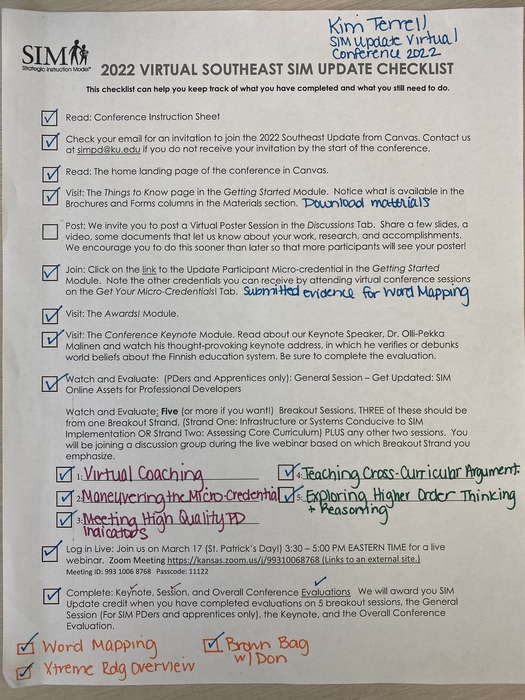 Kim Terrell
SIM update Virtual
Conference 2022
SIM
Strategic Instruction Model®
2022 VIRTUAL SOUTHEAST SIM UPDATE CHECKLIST
This checklist can help you keep track of what you have completed and what you still need to do.
Read: Conference Instruction Sheet
Check your email for an invitation to join the 2022 Southeast Update from Canvas. Contact us
at simpd@ku.edu if you do not receive your invitation by the start of the conference.
Read: The home landing page of the conference in Canvas.
Visit: The Things to Know page in the Getting Started Module. Notice what is available in the
Brochures and Forms columns in the Materials section. Download materials
Post: We invite you to post a Virtual Poster Session in the Discussions Tab. Share a few slides, a
video, some documents that let us know about your work, research, and accomplishments.
We encourage you to do this sooner than later so that more participants will see your poster!
Join: Click on the link to the Update Participant Micro-credential in the Getting Started
Module. Note the other credentials you can receive by attending virtual conference sessions
on the Get Your Micro-Credentials! Tab. Submitted evidence for Word Mapping
Visit: The Awards! Module.
Visit: The Conference Keynote Module. Read about our Keynote Speaker, Dr. Olli-Pekka
Malinen and watch his thought-provoking keynote address, in which he verifies or debunks
world beliefs about the Finnish education system. Be sure to complete the evaluation.
Watch and Evaluate: (PDers and Apprentices only): General Session – Get Updated: SIM
Online Assets for Professional Developers
Watch and Evaluate: Five (or more if you want!) Breakout Sessions. THREE of these should be
from one Breakout Strand, (Strand One: Infrastructure or Systems Conducive to SIM
Implementation OR Strand Two: Assessing Core Curriculum) PLUS any other two sessions. You
will be joining a discussion group during the live webinar based on which Breakout Strand you
emphasize.
1: Virtual Coaching
4: Teaching Cross-Curricular Argument.
2: Maneuvering the Micro-Credential
5: Exploring Higher Order Thinking
+ Reasoning
3: Meeting High Quality PD
Indicators
Log in Live: Join us on March 17 (St. Patrick's Day!) 3:30 – 5:00 PM EASTERN TIME for a live
webinar. Zoom Meeting https://kansas.zoom.us/j/99310068768 (Links to an external site.)
Meeting ID: 993 1006 8768 Passcode: 11122
Complete: Keynote, Session, and Overall Conference Evaluations We will award you SIM
Update credit when you have completed evaluations on 5 breakout sessions, the General
Session (For SIM PDers and apprentices only), the Keynote, and the Overall Conference
Evaluation.
Word Mapping
Xtreme Rdg Overview
Brown Bag
w/ Don